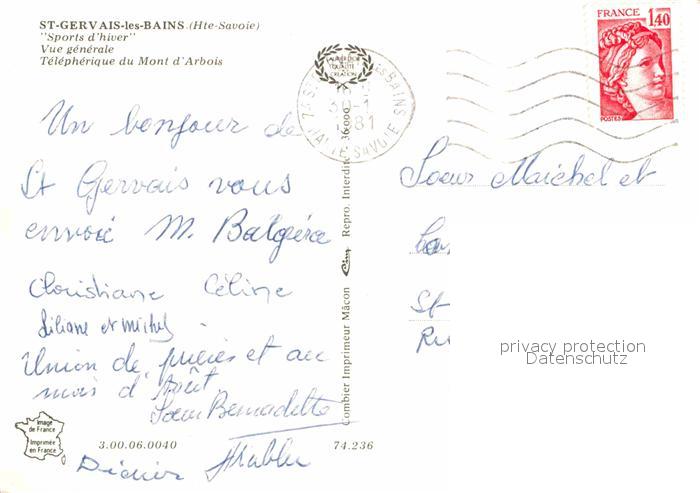 ST-GERVAIS-les-BAINS (Hte-Savoie)
"Sports d'hiver"
Vue générale
Téléphérique du Mont d'Arbois
FRANCE
1,40
POSTES
1981
HAUTE SAVOIE
Un bonjour de
St Gervais vous
envoie M. Balguéra
Christiane Céline
Liliane et Michel
Union de prières et au
mois d'Août
Soeur Bernadette
Didier
Soeur Maichel et
St-
Combier Imprimeur Mâcon Cim Repro. Interdite 36.000
Image
de France
Imprimée
en France
3.00.06.0040
74.236
privacy protection
Datenschutz